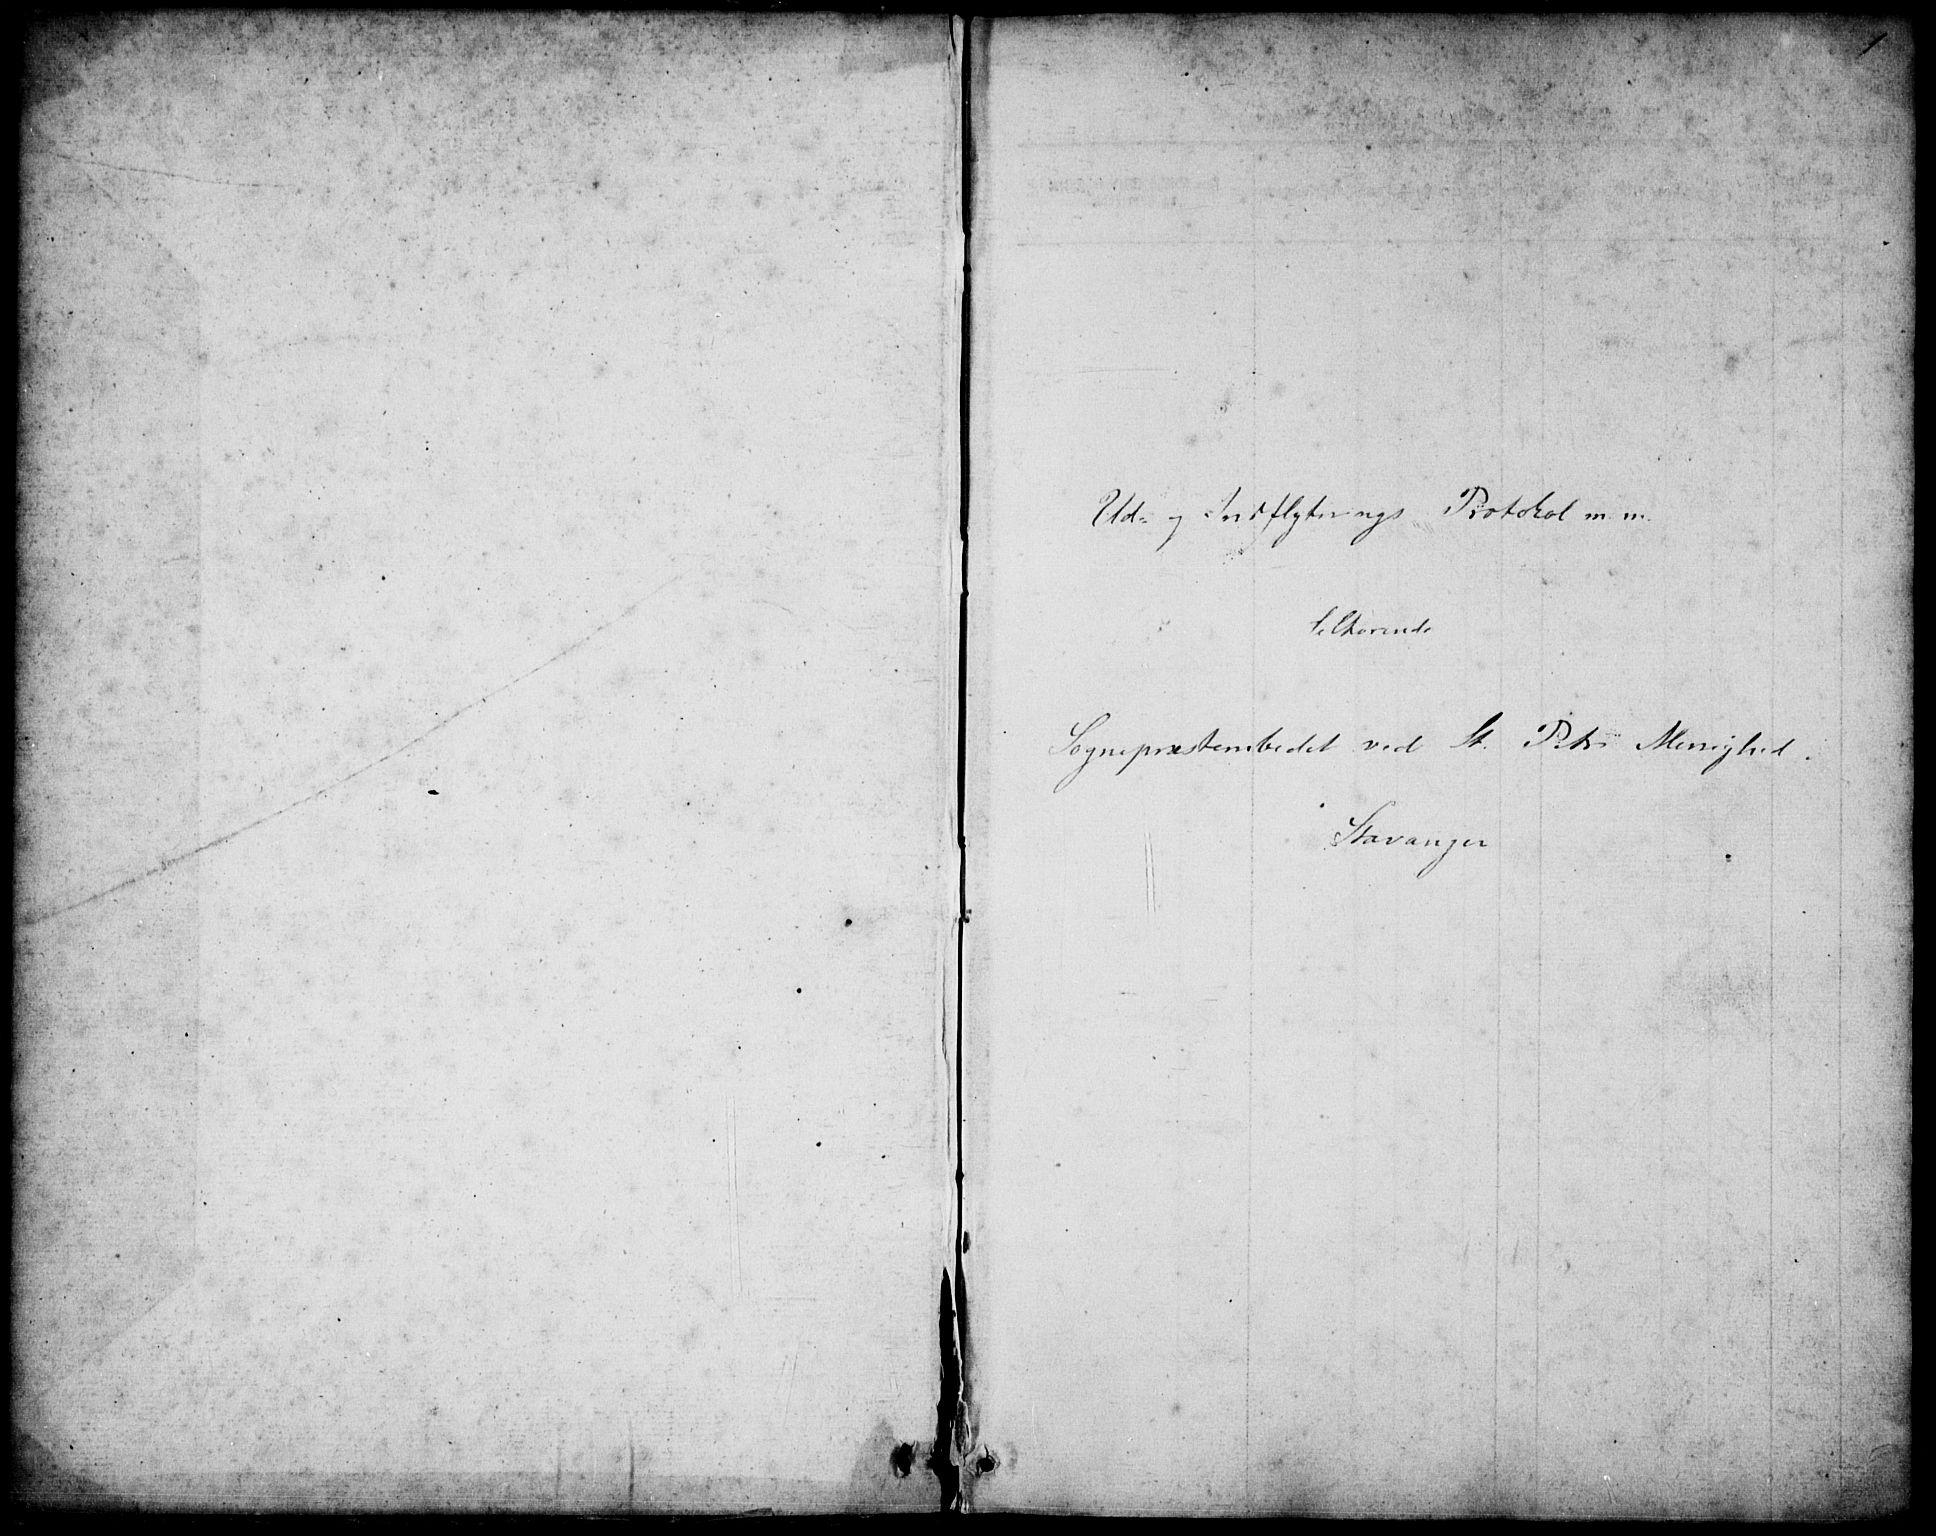 1
Ud- og Indflytnings Protokol m.m.
tilhørende
Sognepræstembedet ved St. Petri Menighed.
Stavanger